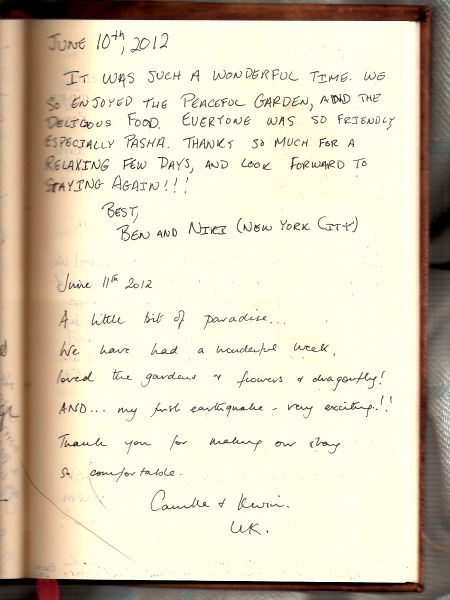 JUNE 10th, 2012
IT WAS SUCH A WONDERFUL TIME. WE
SO ENJOYED THE PEACEFUL GARDEN, AND THE
DELICIOUS FOOD. EVERYONE WAS SO FRIENDLY
ESPECIALLY PASHA. THANKS SO MUCH FOR A
RELAXING FEW DAYS, AND LOOK FORWARD TO
STAYING AGAIN!!!
BEST,
BEN AND NIKI (NEW YORK CITY)
June 11th 2012
A little bit of paradise...
We have had a wonderful week,
loved the gardens & flowers & dragonfly!
AND... my first earthquake - very exciting!!
Thank you for making our stay
so comfortable.
Camilla & Kevin.
UK.